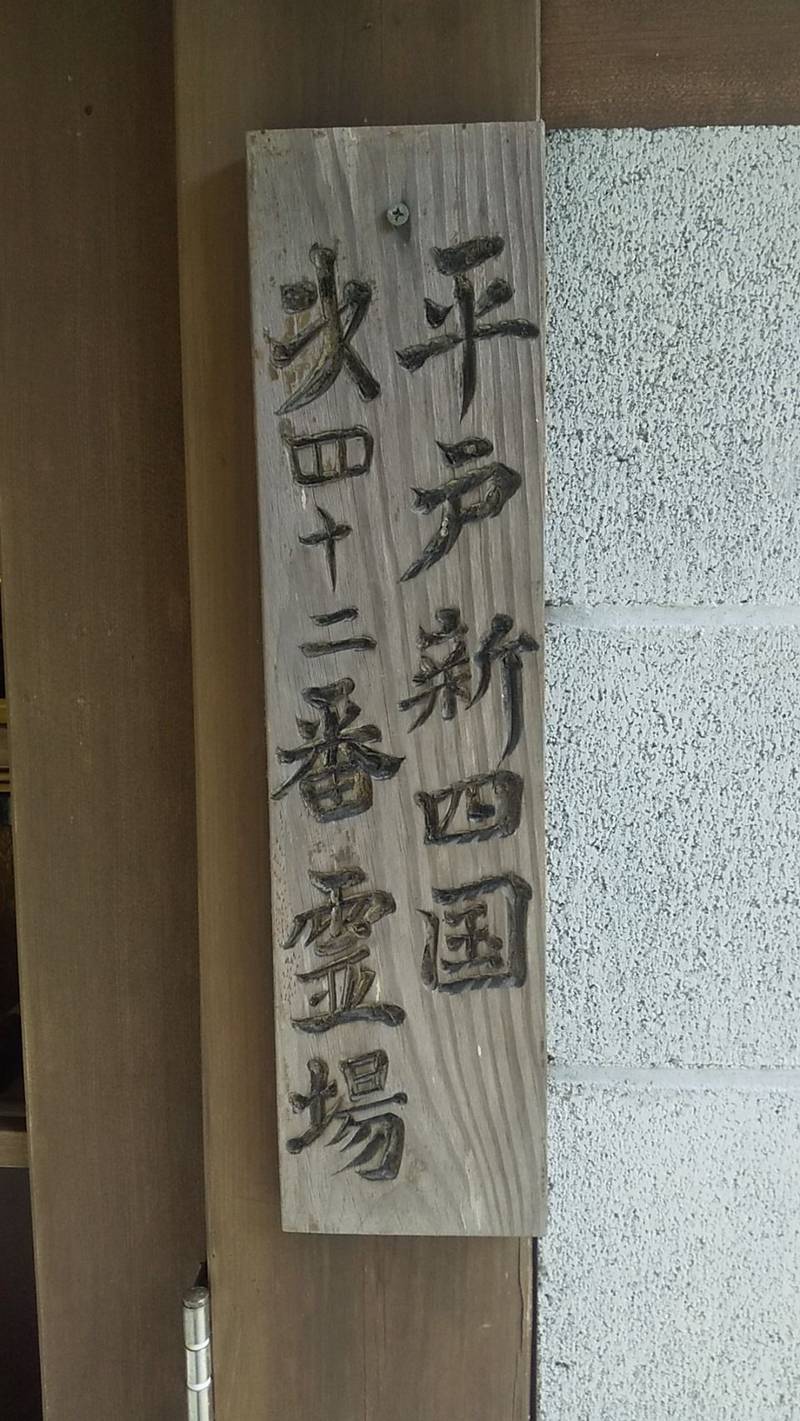 平戸新四国
次四十二番霊場